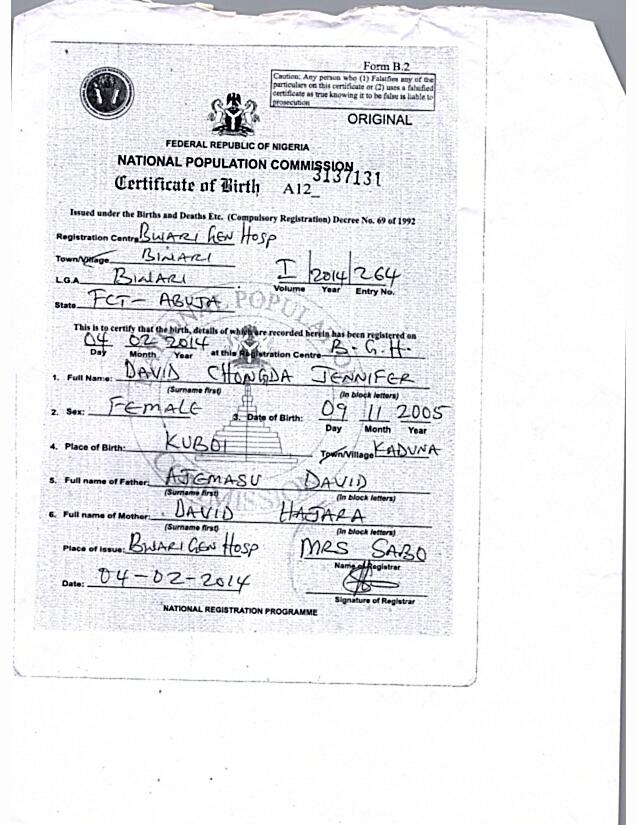 Form B.2
Caution: Any person who (1) Falsifies any of the
particulars on this certificate or (2) uses a falsified
certificate as true knowing it to be false is liable to
prosecution
ORIGINAL
FEDERAL REPUBLIC OF NIGERIA
NATIONAL POPULATION COMMISSION
Certificate of Birth A12_ 3137131
Issued under the Births and Deaths Etc. (Compulsory Registration) Decree No. 69 of 1992
Registration Centre BWARI GEN HOSP
Town/Village BWARI
L.G.A BWARI
I 2014 264
Volume Year Entry No.
State FCT - ABUJA
This is to certify that the birth, details of which are recorded herein has been registered on
04 02 2014 at this Registration Centre B. G. H.
Day Month Year
1. Full Name: DAVID CHONGDA JENNIFER
(Surname first) (In block letters)
2. Sex: FEMALE 3. Date of Birth: 09 11 2005
Day Month Year
4. Place of Birth: KUBOI Town/Village KADUNA
5. Full name of Father: AJEMASU DAVID
(Surname first) (In block letters)
6. Full name of Mother: DAVID HAJARA
(Surname first) (In block letters)
Place of issue: BWARI GEN HOSP MRS SABO
Name of Registrar
Date: 04-02-2014
Signature of Registrar
NATIONAL REGISTRATION PROGRAMME